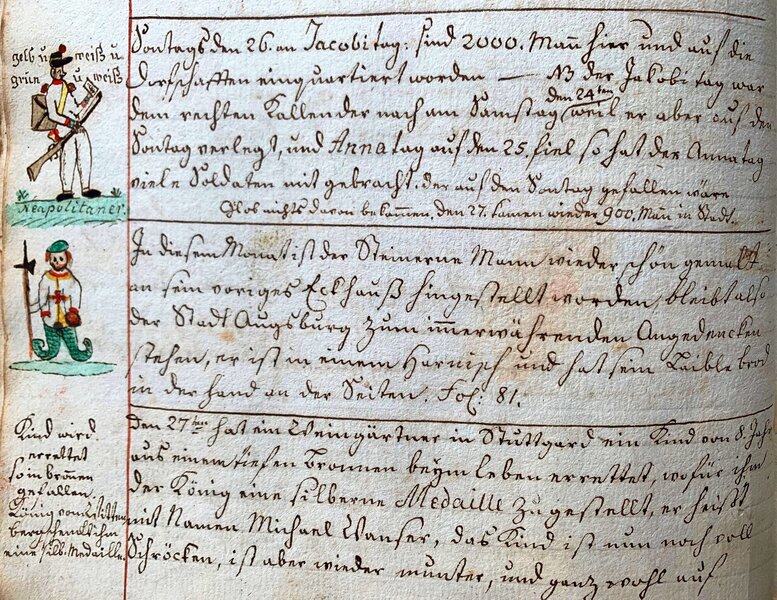 gelb u weiß u
grün u weiß
Neapolitaner.
Sontags den 26. an Jacobitag: sind 2000. Mann hier und auf die
Dorfschafften einquartiert worden — NB der Jakobitag war
dem rechten Kallender nach am Samstag den 24ten weil er aber auf den
Sontag verlegt, und Annatag auf den 25. fiel so hat der Annatag
viele Soldaten mit gebracht. der auf den Sontag gefallen wäre
nichts davon bekommen, den 27. kamen wieder 900. Mann in Stadt.
In diesem Monat ist der Steinerne Mann wieder schön gemalt
an sein voriges Eckhauß hingestellt worden, bleibt also
der Stadt Augsburg zum immerwährenden Angedencken
stehen, er ist in einem Harnisch und hat sein Laible brod
in der hand an der Seiten. Fol: 81.
Kind wird
errettet
so in bronnen
gefallen.
König vom Wittem
berg schenckt ihm
eine silb. Medaille.
den 27ten hat ein Weingärtner in Stuttgard ein Kind von 8. Jahr
aus einem tiefen bronnen beym leben errettet, wofür ihm
der König eine silberne Medaille zu gestellt, er heisst
mit Namen Michael Wanser, das Kind ist nun noch voll
Schröcken, ist aber wieder munter, und ganz wohl auf